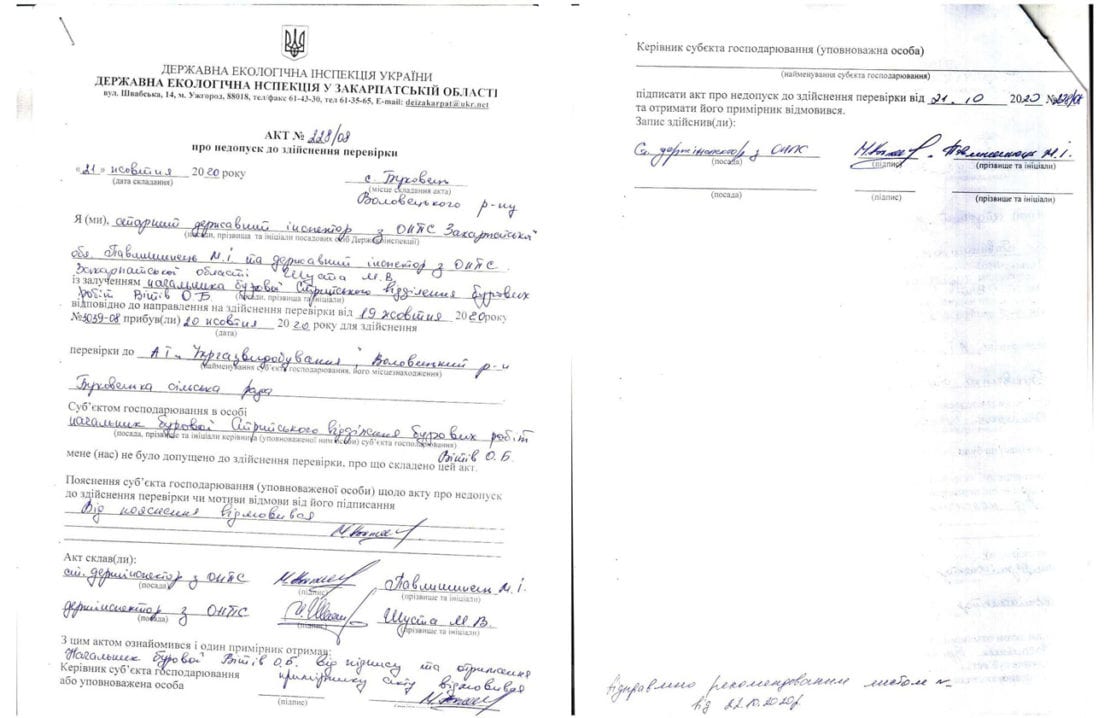 ДЕРЖАВНА ЕКОЛОГІЧНА ІНСПЕКЦІЯ УКРАЇНИ
ДЕРЖАВНА ЕКОЛОГІЧНА НСПЕКЦІЯ У ЗАКАРПАТСЬКІЙ ОБЛАСТІ
вул. Швабська, 14, м. Ужгород, 88018, тел/факс 61-43-30, тел 61-35-65, E-mail: deizakarpat@ukr.net
АКТ № 228/08
про недопуск до здійснення перевірки
«21» жовтня 2020 року
(дата складання)
с. Буковець
(місце складання акта)
Воловецького р-ну
Я (ми), старший державний інспектор з ОНПС Закарпатської
(посади, прізвища та ініціали посадових осіб Держекоінспекції)
обл. Павлишинець М.І. та державний інспектор з ОНПС
Закарпатської області Шуста М.В.
із залученням начальника бурової Стрийського відділення бурових
робіт Вітів О.Б. (посади, прізвища та ініціали)
відповідно до направлення на здійснення перевірки від 19 жовтня 2020 року
№3039-08 прибув(ли) 20 жовтня 2020 року для здійснення
(дата)
перевірки до АТ "Укргазвидобування", Воловецький р-н
(найменування суб'єкта господарювання, його місцезнаходження)
Буковецька сільська рада
Суб'єктом господарювання в особі
начальник бурової Стрийського відділення бурових робіт
(посада, прізвище та ініціали керівника (уповноваженої ним особи) суб'єкта господарювання)
Вітів О.Б.
мене (нас) не було допущено до здійснення перевірки, про що складено цей акт.
Пояснення суб'єкта господарювання (уповноваженої особи) щодо акту про недопуск
до здійснення перевірки чи мотиви відмови від його підписання
Від пояснення відмовився
Акт склав(ли):
ст. держінспектор з ОНПС Павлишинець М.І.
(посада) (підпис) (прізвище та ініціали)
держінспектор з ОНПС Шуста М.В.
(посада) (підпис) (прізвище та ініціали)
З цим актом ознайомився і один примірник отримав:
Начальник бурової Вітів О.Б. від підпису та отримання
Керівник суб'єкта господарювання примірнику акту відмовився
або уповноважена особа
(підпис)
Керівник субєкта господарювання (уповноважна особа)
(найменування субєкта господарювання)
підписати акт про недопуск до здійснення перевірки від 21.10 2020 №228/08
та отримати його примірник відмовився.
Запис здійснив(ли):
Ст. держінспектор з ОНПС Павлишинець М.І.
(посада) (підпис) (прізвище та ініціали)
(посада) (підпис) (прізвище та ініціали)
Відправлено рекомендованим листом №
від 22.10.2020р.